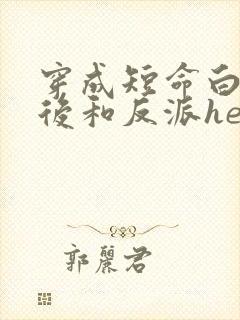 穿成短命白
後和反派he
郭麗君